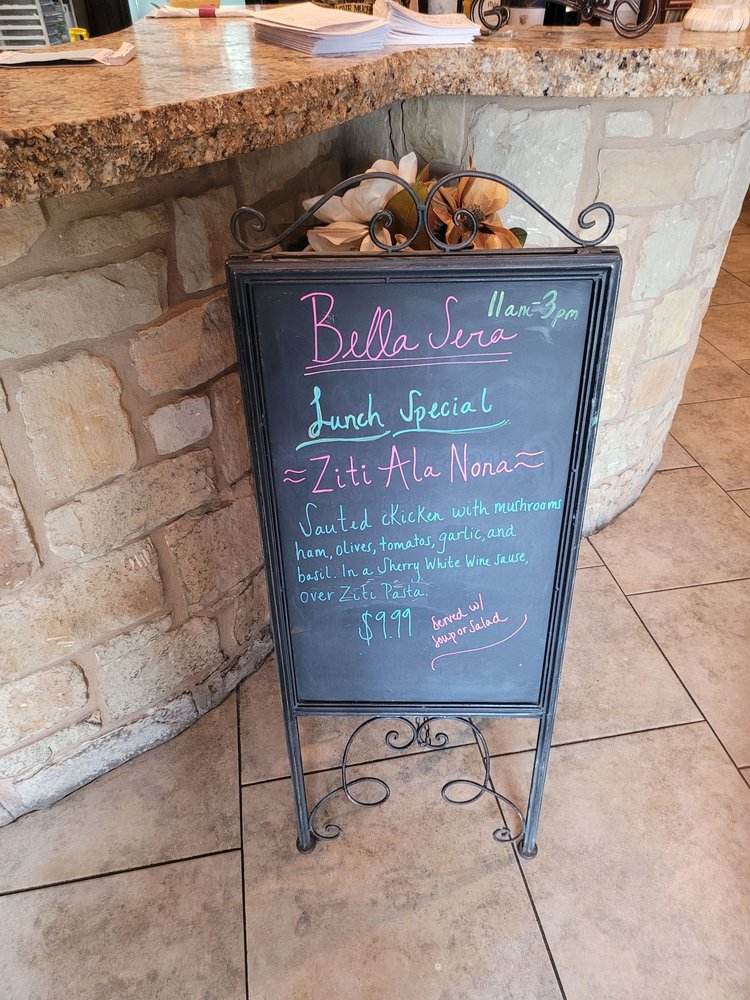 Bella Sera 11am-3pm
Lunch Special
~Ziti Ala Nona~
Sauted chicken with mushrooms
ham, olives, tomatos, garlic, and
basil. In a Sherry White Wine sause,
over Ziti Pasta.
$9.99 Served w/
soup or Salad